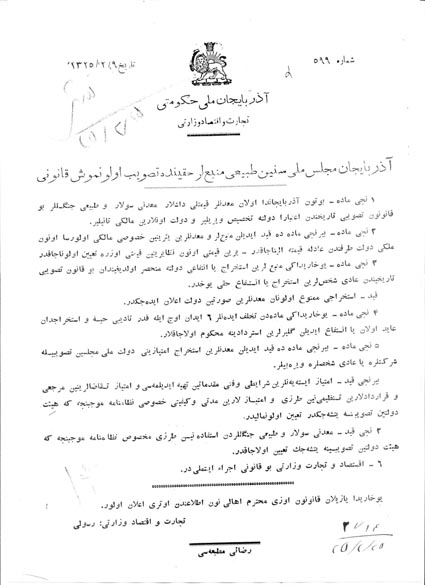 شماره ۵۹۹
تاریخ ۱۳۲۵/۲/۹
آذربایجان ملی حکومتی
تجارت و اقتصاد وزارتی
آذربایجان مجلس ملی سنین طبیعی منبع لر حقینده تصویب اولونموش قانونی
۱ نجی ماده – بوتون آذربایجاندا اولان معدنلر قیمتلی داشلار معدنی سولار و طبیعی جنگللر بو
قانونون تصویبی تاریخندن اعتبارا دولته تخصیص ویریلیر و دولت اونلارین مالکی تانیلیر.
۲ نجی ماده – بیرنجی ماده ده قید ایدیلن منبع لر و معدنلرین یرینین خصوصی مالکی اولورسا اونون
ملکی دولت طرفندن عادله قیمته آلناجاقدر – یرین قیمتی اونون نظایرینین قیمتی اوزره تعیین اولوناجاقدر
۳ نجی ماده – یوخاریداکی منبع لرین استخراج یا انتفاعی دولته منحصر اولدیغیندان بو قانون تصویبی
تاریخیندن عادی شخص لرین استخراج یا انتفاع حقی یوخدر.
قید – استخراجی ممنوع اولونان معدنلرین صورتین دولت اعلان ایده جکدر.
۴ نجی ماده – یوخاریداکی ماده دن تخلف ایدنلر ۶ ایدان اوچ ایله قدر تادیبی حبسه و استخراجدان
عاید اولان یا انتفاع ایدیلن گلیرلرین استردادینه محکوم اولاجاقلار.
۵ نجی ماده – بیرنجی ماده ده قید ایدیلن معدنلرین استخراج امتیازینی دولت ملی مجلسین تصویبیله
شرکتلره یا عادی شخصلره ویره بیلر.
بیرنجی قید – امتیاز ایسته یه نلرین شرایطی وفنی مقدماتین تهیه ایدیلمه سی و امتیاز تقاضالرینین مرجعی
و قراردادلارین تنظیمی نین طرزی و امتیاز لارین مدتی و کیفیتی خصوصی نظامنامه موجبنجه که هیئت
دولتین تصویبینه یتشه جکدر تعیین اولونمالیدر.
۲ نجی قید – معدنی سولار و طبیعی جنگللردن استفاده نین طرزی مخصوص نظامنامه موجبنجه که
هیئت دولتین تصویبینه یتشه جك تعیین اولاجاقدر.
۶ – اقتصاد و تجارت وزارتی بو قانونی اجراء ایتملی در.
یوخاریدا یازیلان قانونون اوزی محترم اهالی نون اطلاعندن اوتری اعلان اولور.
تجارت و اقتصاد وزارتی: رسولی
رضائی مطبعه سی